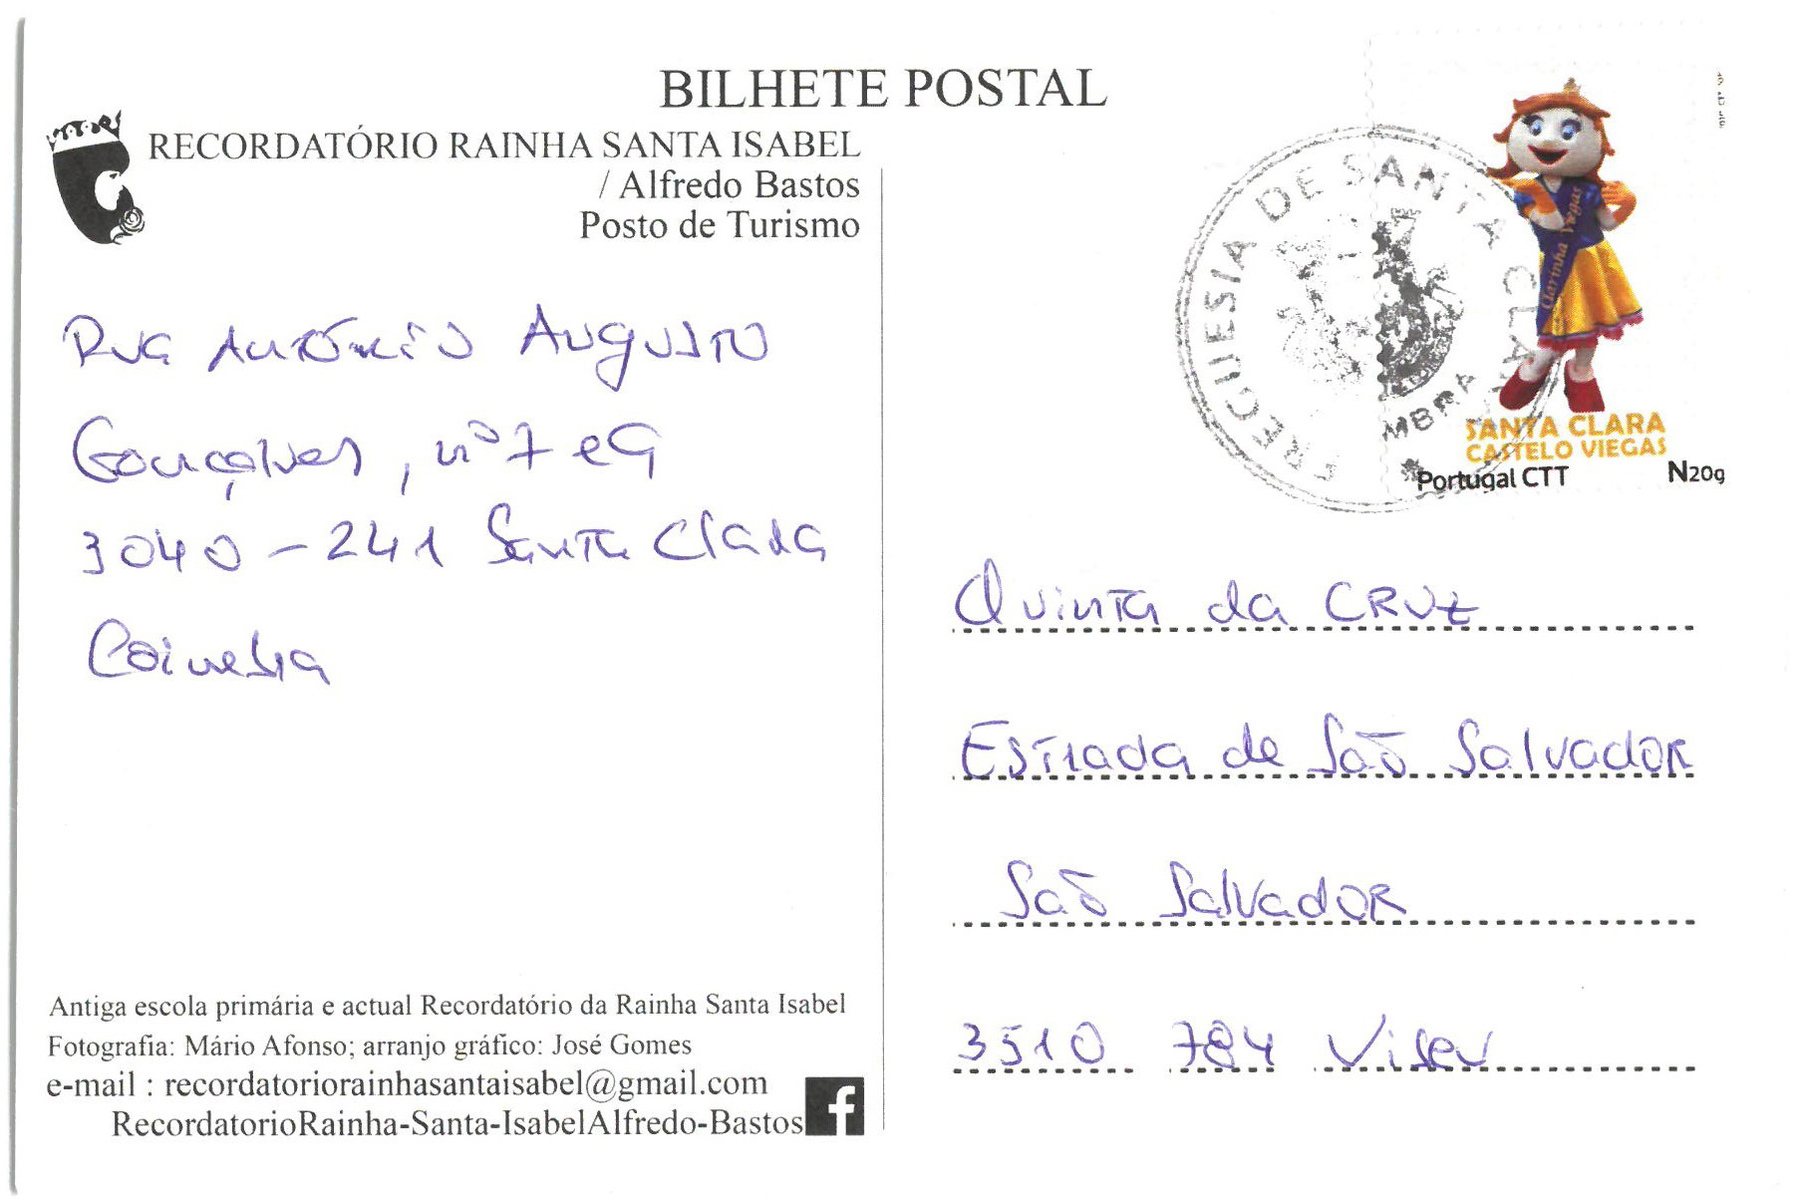 BILHETE POSTAL
RECORDATÓRIO RAINHA SANTA ISABEL
/ Alfredo Bastos
Posto de Turismo
Rua António Augusto
Gonçalves, nº 7 e 9
3040 - 241 Santa Clara
Coimbra
Antiga escola primária e actual Recordatório da Rainha Santa Isabel
Fotografia: Mário Afonso; arranjo gráfico: José Gomes
e-mail : recordatoriorainhasantaisabel@gmail.com
RecordatorioRainha-Santa-IsabelAlfredo-Bastos
f
FREGUESIA DE SANTA CLARA
MBRA
Clarinha Viegas
SANTA CLARA
CASTELO VIEGAS
Portugal CTT N20g
Quinta da CRUZ
Estrada de São Salvador
São Salvador
3510 784 Viseu